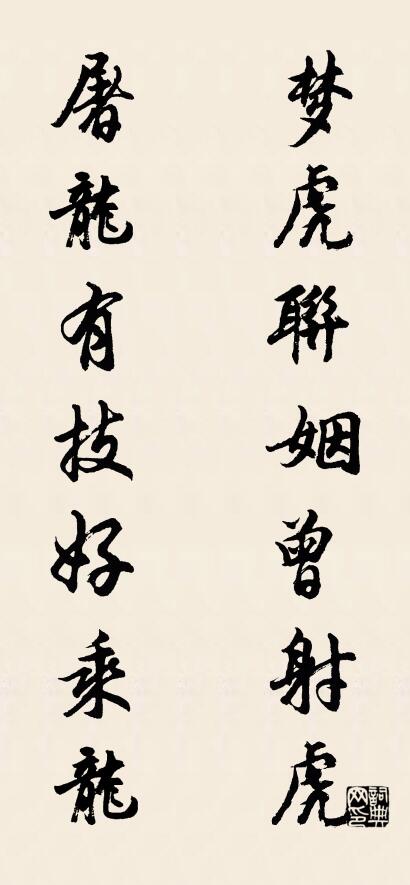 梦虎聯姻曾射虎
屠龍有技好乘龍
詞典
网